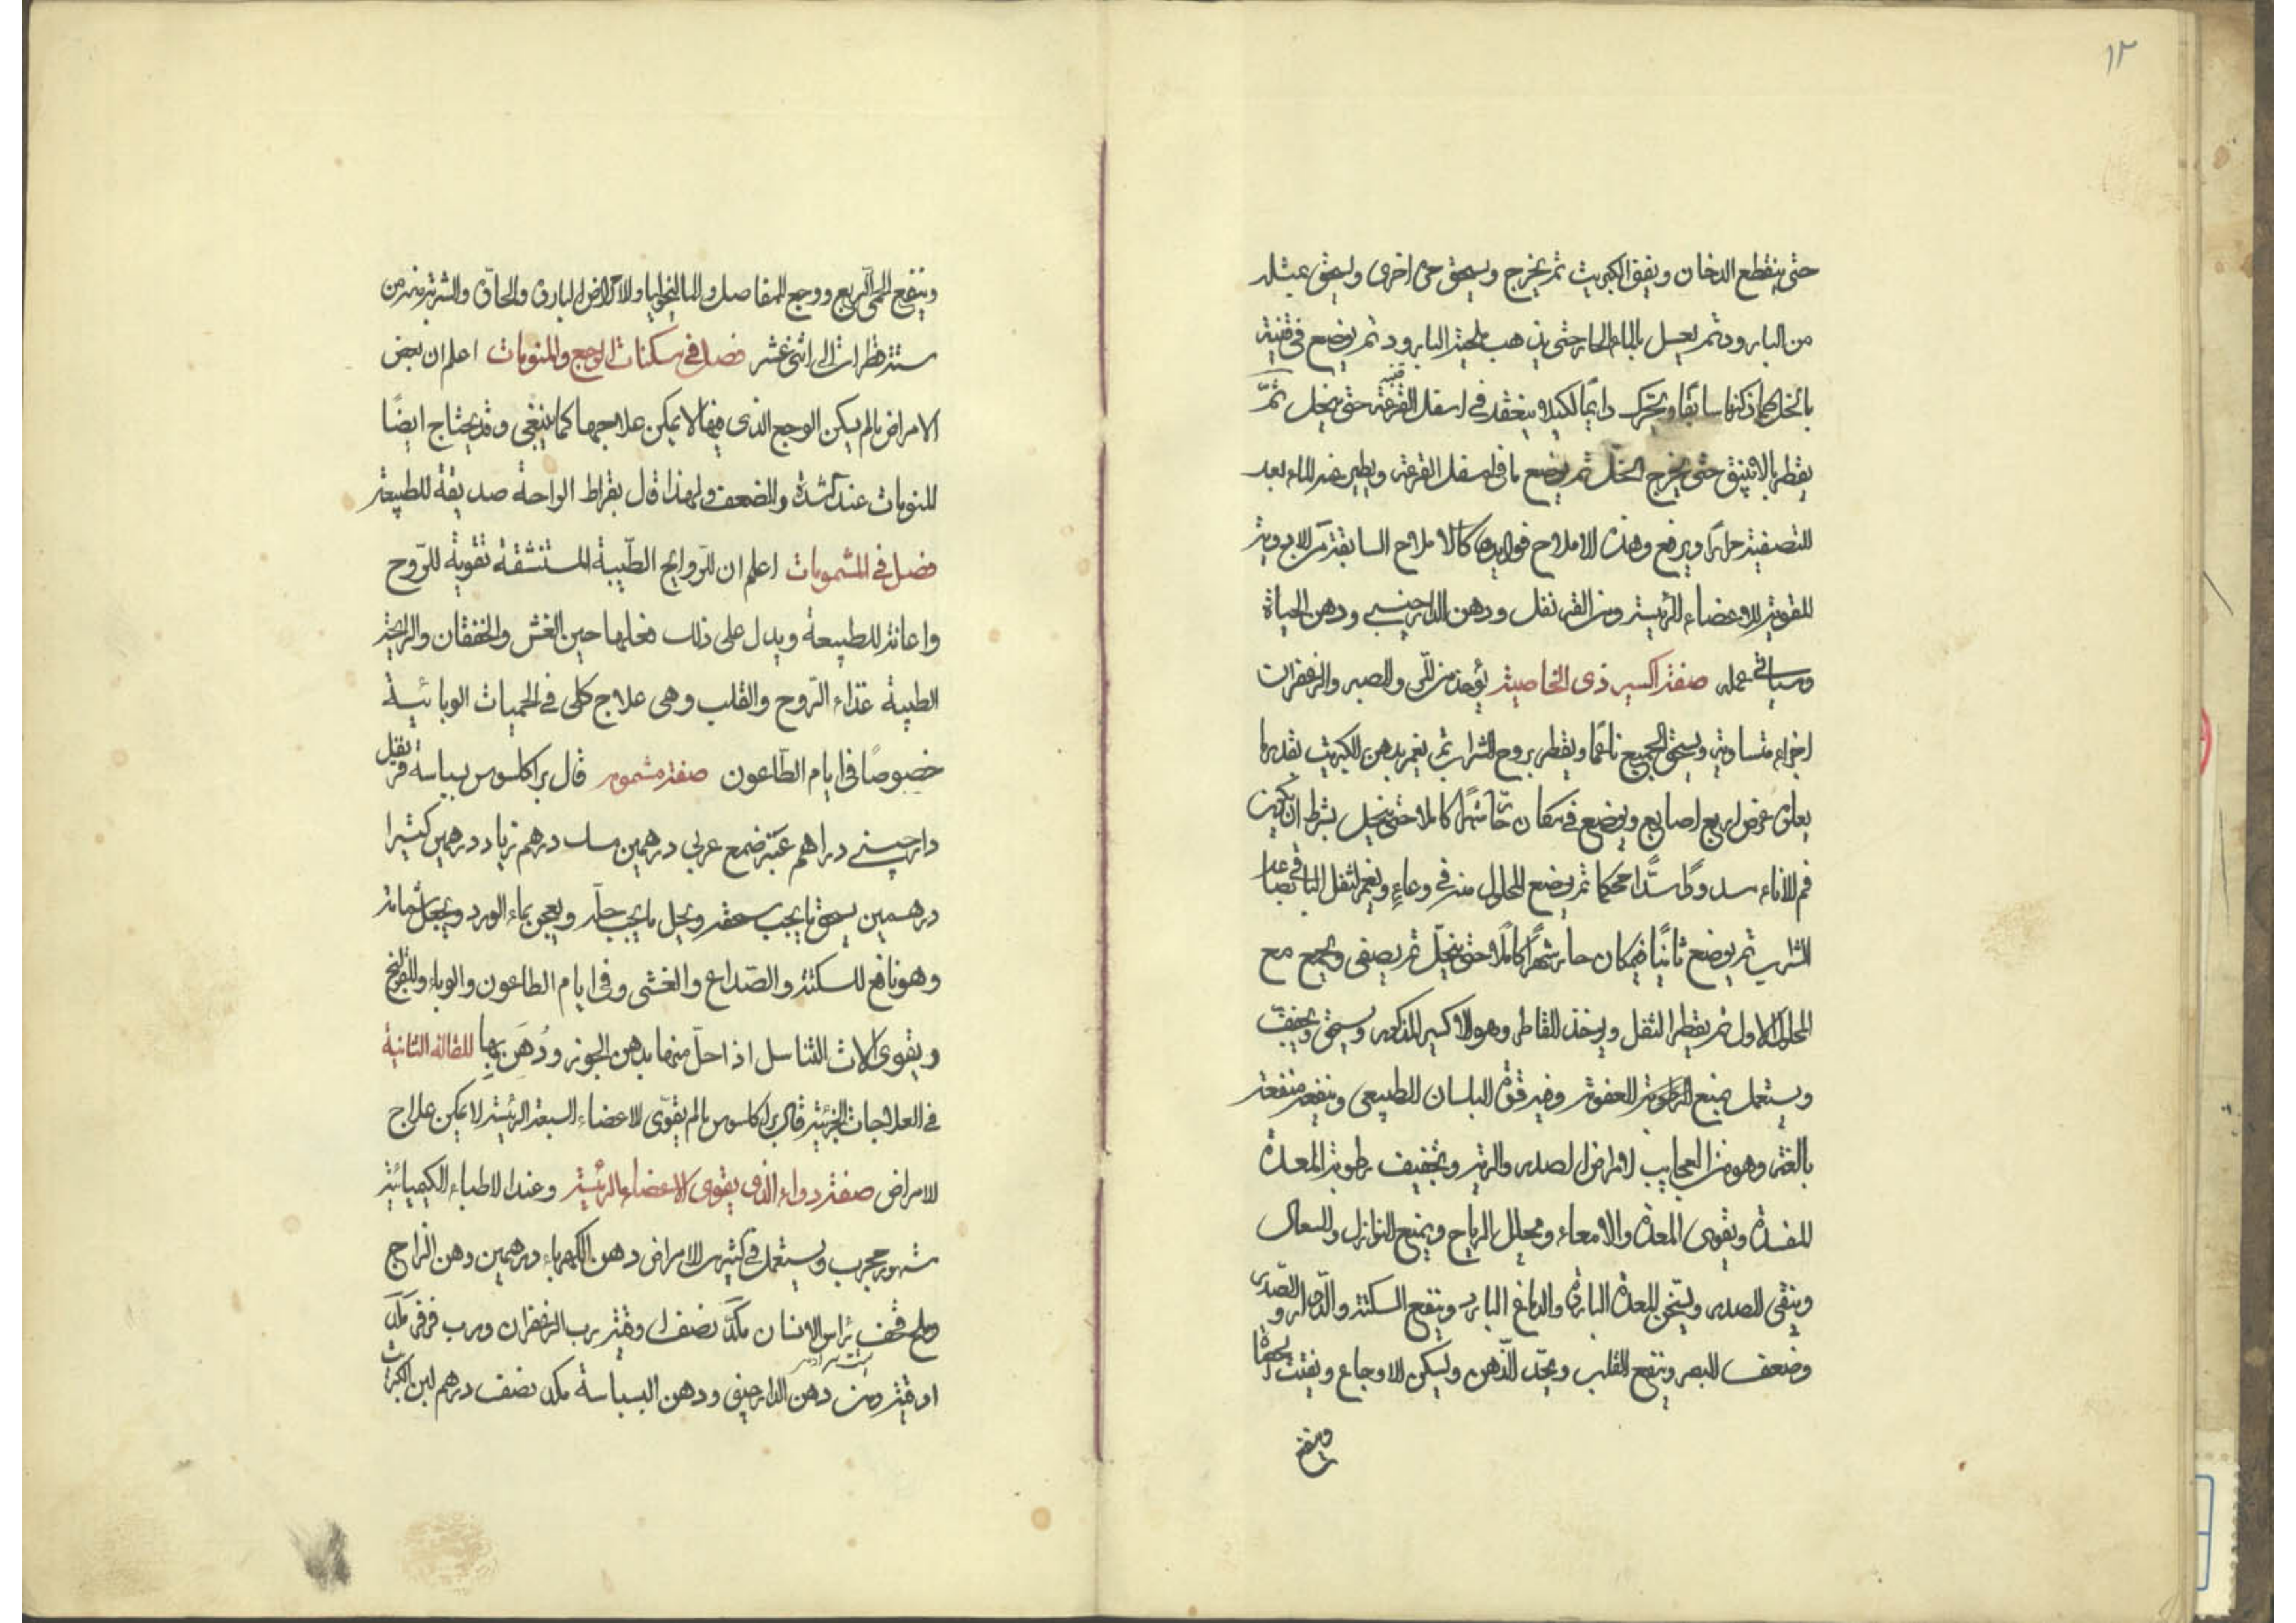 ١٢
حتى ينقطع الدخان ويفق الكبريت ثم يخرج ويسحق مرة اخرى ويسحق بمثله
من البارود ثم يغسل بالماء الحار حتى يذهب ملحية البارود ثم يوضع في قنينة
بالخل كما ذكرنا سابقا ويحرك دايمًا لكيلا ينعقد في اسفل القرعة حتى ينحل ثمّ
يقطر بالانبيق حتى يخرج الخلّ ثم يوضع ما في اسفل القرعة ويطير عنه الماء بعد
التصفية مرارًا ويرفع وهذه الاملاح فوايدها كالاملاح السابقة من الادوية
المقوية للاعضاء الرئيسة دهن القرنفل ودهن الدارجيني ودهن الحياة
وسياتي عمله صفة اكسير ذى الخاصية يؤخذ من المر والصبر والزعفران
اجزاء متساوية ويسحق الجميع ناعمًا ويقطر بروح الشراب ثم يغمر بدهن الكبريت بقدر ما
يعلوه عرض اربع اصابع ويوضع في مكان حارّ شهرًا كاملا حتى ينحل بشرط ان يكون
فم الاناء مسدودًا سدًّا محكما ثم يوضع المحلول منه في وعاءٍ ويغمر الثفل الباقي بصاعد
الشراب ثم يوضع ثانيًا في مكان حار شهرًا كاملًا حتى ينحلّ ثم يصفى ويجمع مع
المحلول الاول ثم يقطر الثفل ويوخذ القاطر وهو الاكسير المذكور ويسحق ويجفف
ويستعمل يمنع الرطوبة العفونة وفيه قوة البلسان الطبيعى وينفع منفعة
بالغة وهو من العجايب لامراض الصدر والرية وتجفيف رطوبة المعدة
المفسدة ويقوى المعدة والامعاء ويحلل الرياح ويمنع النوازل والسعال
وينقى الصدر ويسخن المعدة الباردة والدماغ البارد وينفع السكتة والدّوار والصّدر
وضعف البصر وينفع القلب ويحدّ الذّهن ويسكن الاوجاع ويفتت الحصاة
وينفع
وينفع الحمى الربع ووجع المفاصل والماليخوليا والامراض الباردة والحادّة والشربة منه من
ستة قطرات الى اثنى عشر فصل في مسكنات الوجع والمنومات اعلم ان بعض
الامراض مالم يكن الوجع الذى فيها لا يمكن علاجها كما ينبغى وقد يحتاج ايضًا
للمنومات عند الشدة والضعف ولهذا قال بقراط الراحة صديقة للطبيعة
فصل في المشمومات اعلم ان للرّوايح الطّيبة المستنشقة تقوية للرّوح
واعانة للطبيعة ويدل على ذلك فعلها حين الغشى والخفقان والرايحة
الطيبة غذاء الرّوح والقلب وهى علاج كلى في الحميات الوبائية
خصوصًا فى ايام الطّاعون صفة مشموم قال براكلسوس بسباسة قرنفل
دارجينى دراهم عنبر ضمغ عربي درهمين مسك درهم زباد درهمين كثيرا
درهمين يسحق ما يجب سحقه ويحل ما يجب حلّه ويعجن بماء الورد ويجعل شمامة
وهو نافع للسكتة والصّداع والغشى وفى ايام الطاعون والوباء والقولنج
ويقوى آلات التناسل اذا حلّ منها بدهن الجوز ودُهِن بها المقالة الثانية
في العلاجات الجزئية قال براكلسوس مالم يقوّى الاعضاء السبعة الرئيسة لا يمكن علاج
الامراض صفة دواء الذى يقوى الاعضاء الرئيسة وعند الاطباء الكيميائية
مشهور مجرب ويستعمل في كثير من الامراض دهن الكهرباء درهمين دهن الزاج
وملح قحف رأس الانسان من كلّ نصف اوقية رب الزعفران ورب قرقر من كلّ
اوقية ومن دهن الدارجينى ودهن البسباسة من كل نصف درهم لبن الكبريت